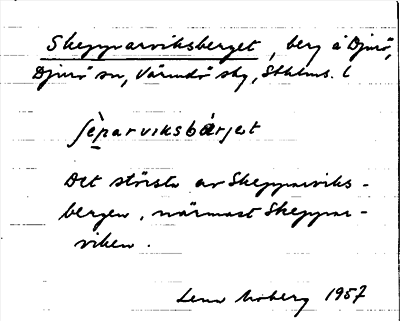 Skepparviksberget, berg å Djurö,
Djurö sn, Värmdö skg, Sthlms. l
ʃèparviksbærjet
Det största av Skepparviks-
bergen, närmast Skeppar-
viken.
Lena Moberg 1957